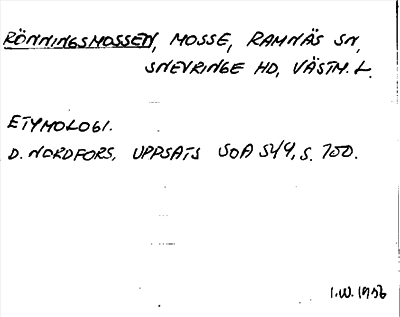 RÖNNINGSMOSSEN, MOSSE, RAMNÄS SN,
SNEVRINGE HD, VÄSTM. L.
ETYMOLOGI.
D. NORDFORS, UPPSATS SOA 544, S. 100.
I.W. 1956